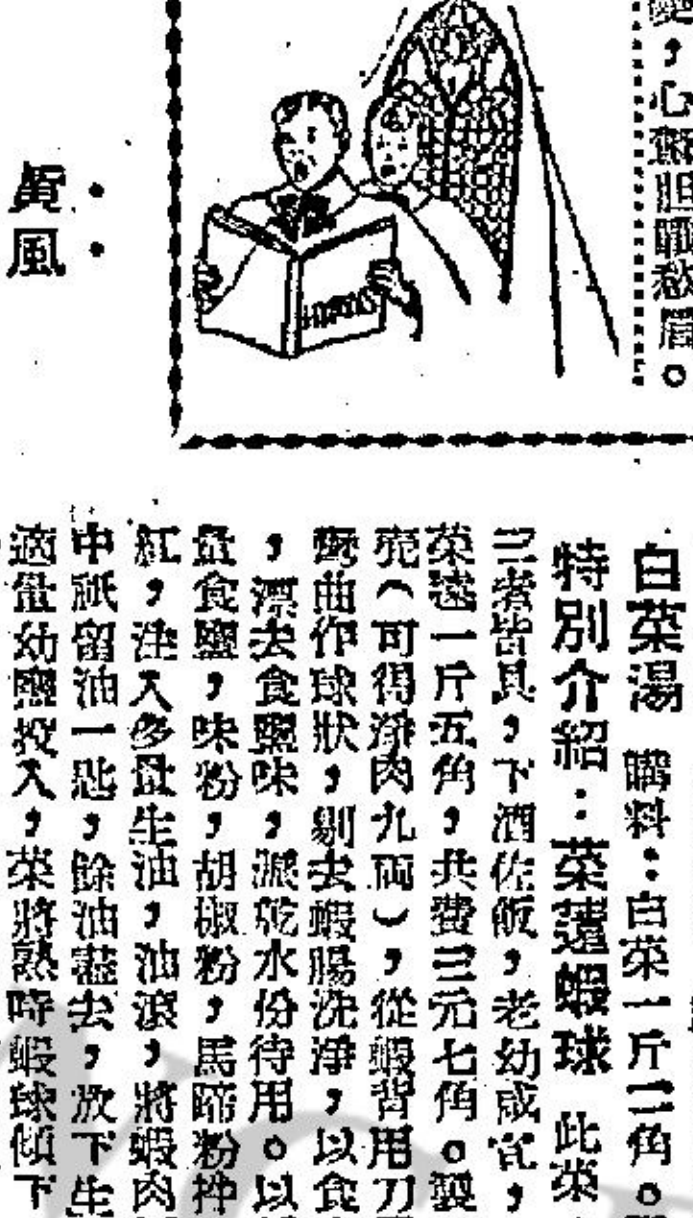 心
愁眉。
風
HYMNS
白菜湯 購料:白菜一斤二角。
特別介紹:菜薳蝦球 此菜
三者皆具,下酒佐飯,老幼咸宜,
菜薳一斤五角,共費三元七角。製
壳(可得淨肉九両),從蝦背用刀
彎曲作球狀,剔去蝦腸洗淨,以食
,漂去食鹽味,滬乾水份待用。以
量食鹽,味粉,胡椒粉,馬蹄粉拌
紅,注入多量生油,油滾,將蝦肉
中祇留油一匙,餘油盡去,放下生
適量幼鹽投入,菜將熟時蝦球傾下